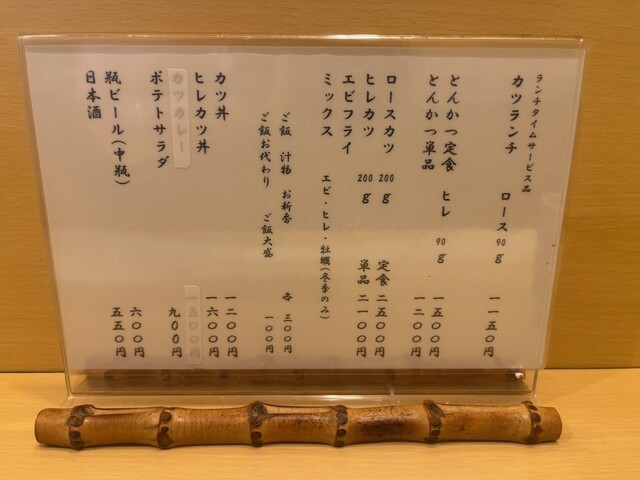 ランチタイムサービス品
カツランチ ロース90g 一一五〇円
とんかつ定食 ヒレ 90g 一五〇〇円
とんかつ単品 一二〇〇円
ロースカツ 200g 定食 二五〇〇円
ヒレカツ 200g 単品 二一〇〇円
エビフライ
ミックス エビ・ヒレ・牡蠣(冬季のみ)
ご飯 汁物 お新香 各 三〇〇円
ご飯お代わり ご飯大盛 一〇〇円
カツ丼 一二〇〇円
ヒレカツ丼 一六〇〇円
カツカレー 一五〇〇円
ポテトサラダ 九〇〇円
瓶ビール(中瓶) 六〇〇円
日本酒 五五〇円